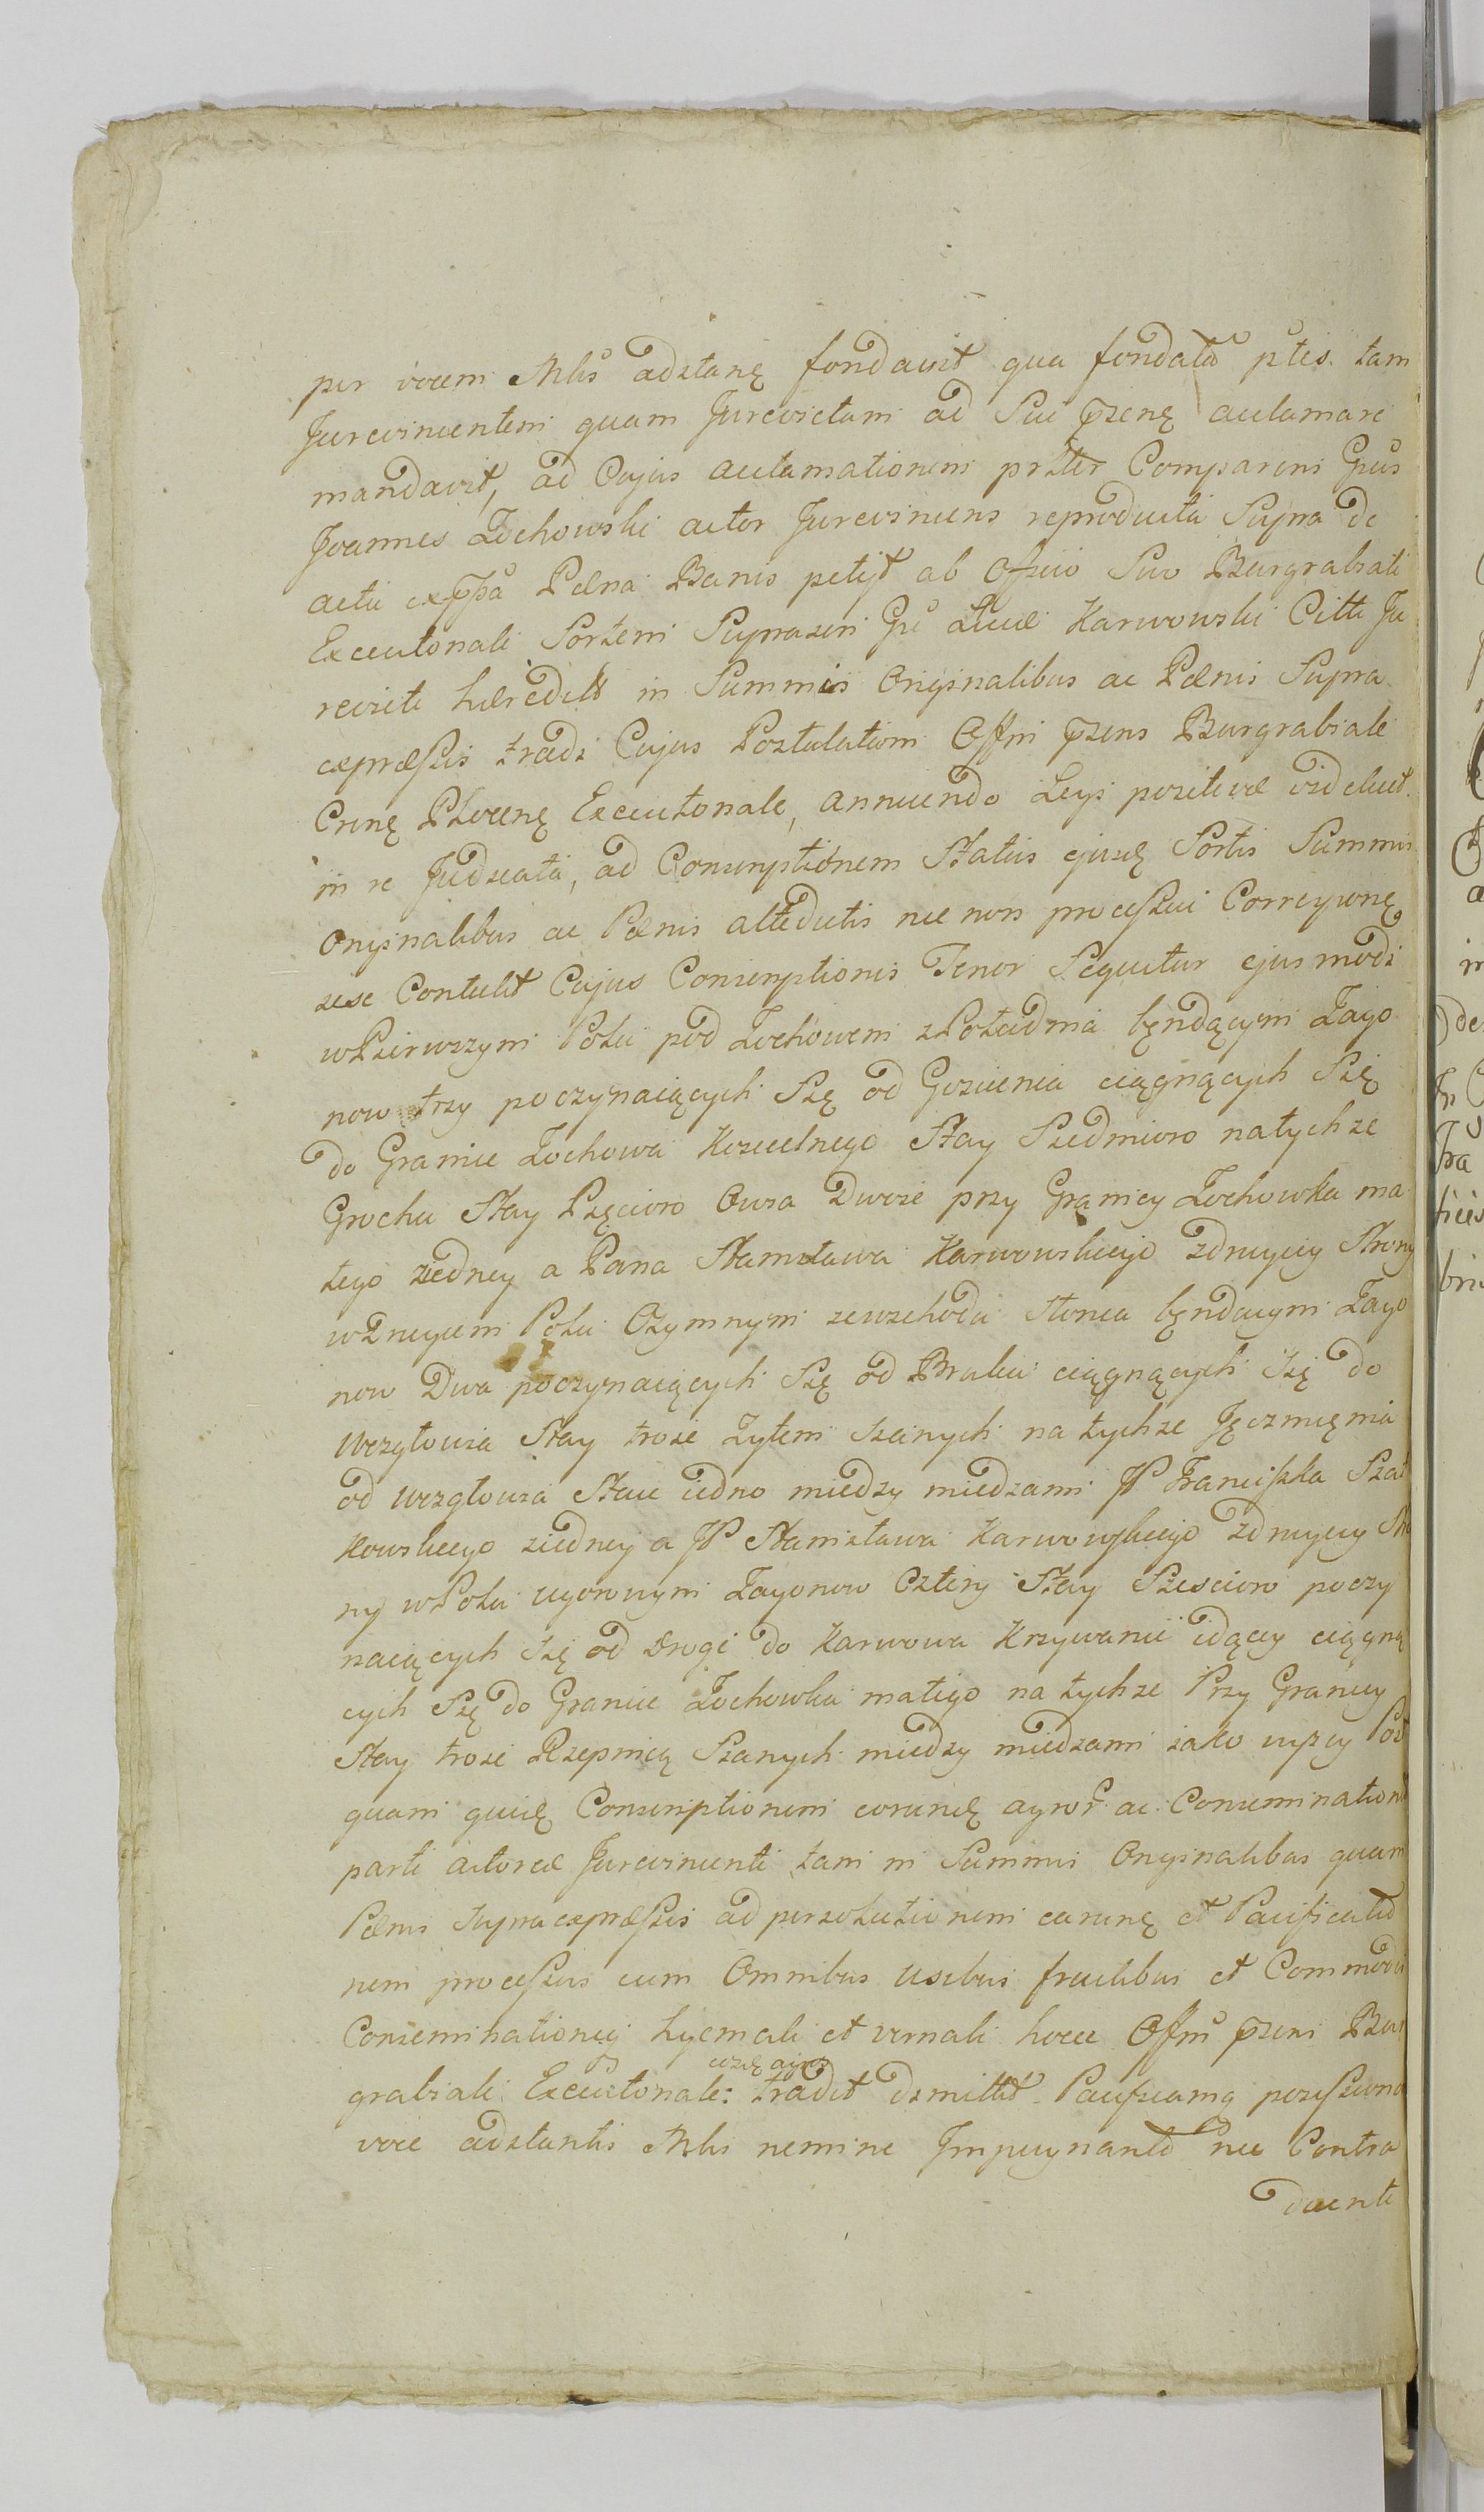 per vocem Mlis adstantę fondavit qua fondata ptes tam
Jurevincentem quam Jurevictam ad Sui pzenę acclamare
mandavit, ad Cujus acclamationem prster Comparens Gnus
Joannes Żochowski actor Jurevincens reproducta Supra de
actu expssa Pæna Banis petijt ab Offcio Suo Burgrabiali
Executonali Sortem Suprascri Gni Lucæ Karwowski Citti Ju
revicti hæredit in Summis Originalibus ac Pænis Supra
expræssis tradi Cujus Postulationi Offm pzens Burgrabiale
Crenę Ploccenę Executonale, annuendo Legi positivæ videlicet
in re Judicata, ad Conscriptionem Status ejusdę Sortis Summis
Originalibus ac Pænis alteductis nec non processui Correspondę
sese Contulit Cujus Conscriptionis Tenor Sequitur ejusmodi
wPierwszym Polu pod Żochowem zPołudnia będącym Zago
now trzy poczynaiących Się od Goscienca ciągnących Się
do Granic Żochowa Koscielnego Stay Siedmioro natychze
Grochu Stay Pięcioro Owsa Dwoie przy Granicy Żochowka ma
łego ziedney a Pana Stanisława Karwowskiego zdrugiey Strony
wDrugiem Polu Ozymnym zewschodu Słonca będącym Zago
now Dwa poczynaiących Się od Bruku ciągnących się do
Wezgłowia Stay troie Zytem Sianych na tychze Jęczmięnia
od Wezgłowia Staie iedno miedzy miedzami JP Franciszka Szat
kowskiego ziedney a JP Stanisława Karwowskiego zdrugiey Stro
ny wPolu ugorowym Zagonow Cztery Stay Szescioro poczy
naiących się od drogi do Karwowa Krzywanic idący ciągną
cych Się do Granic Żochowka małego na tychze Przy Granicy
Stay troie Rzepnicą Sianych miedzy miedzami iako wyzey Post
quam quidę Conscriptionem eorundę agror ac Conseminationū
parti actoreæ Jurevincenti tam in Summis Originalibus quam
Pænis supraexpræssis ad persolutionem earundę et Pacificatio
nem processus cum Omnibus usibus fructibus et Commodis
Conseminationeq hyemali et vernali hocce Offm pzens Bur
grabiali Executonale: eosdę agros tradit dimittit Pacificamq possessionē
voce adstantis Mlis nemine Impugnante nec Contra
dicente